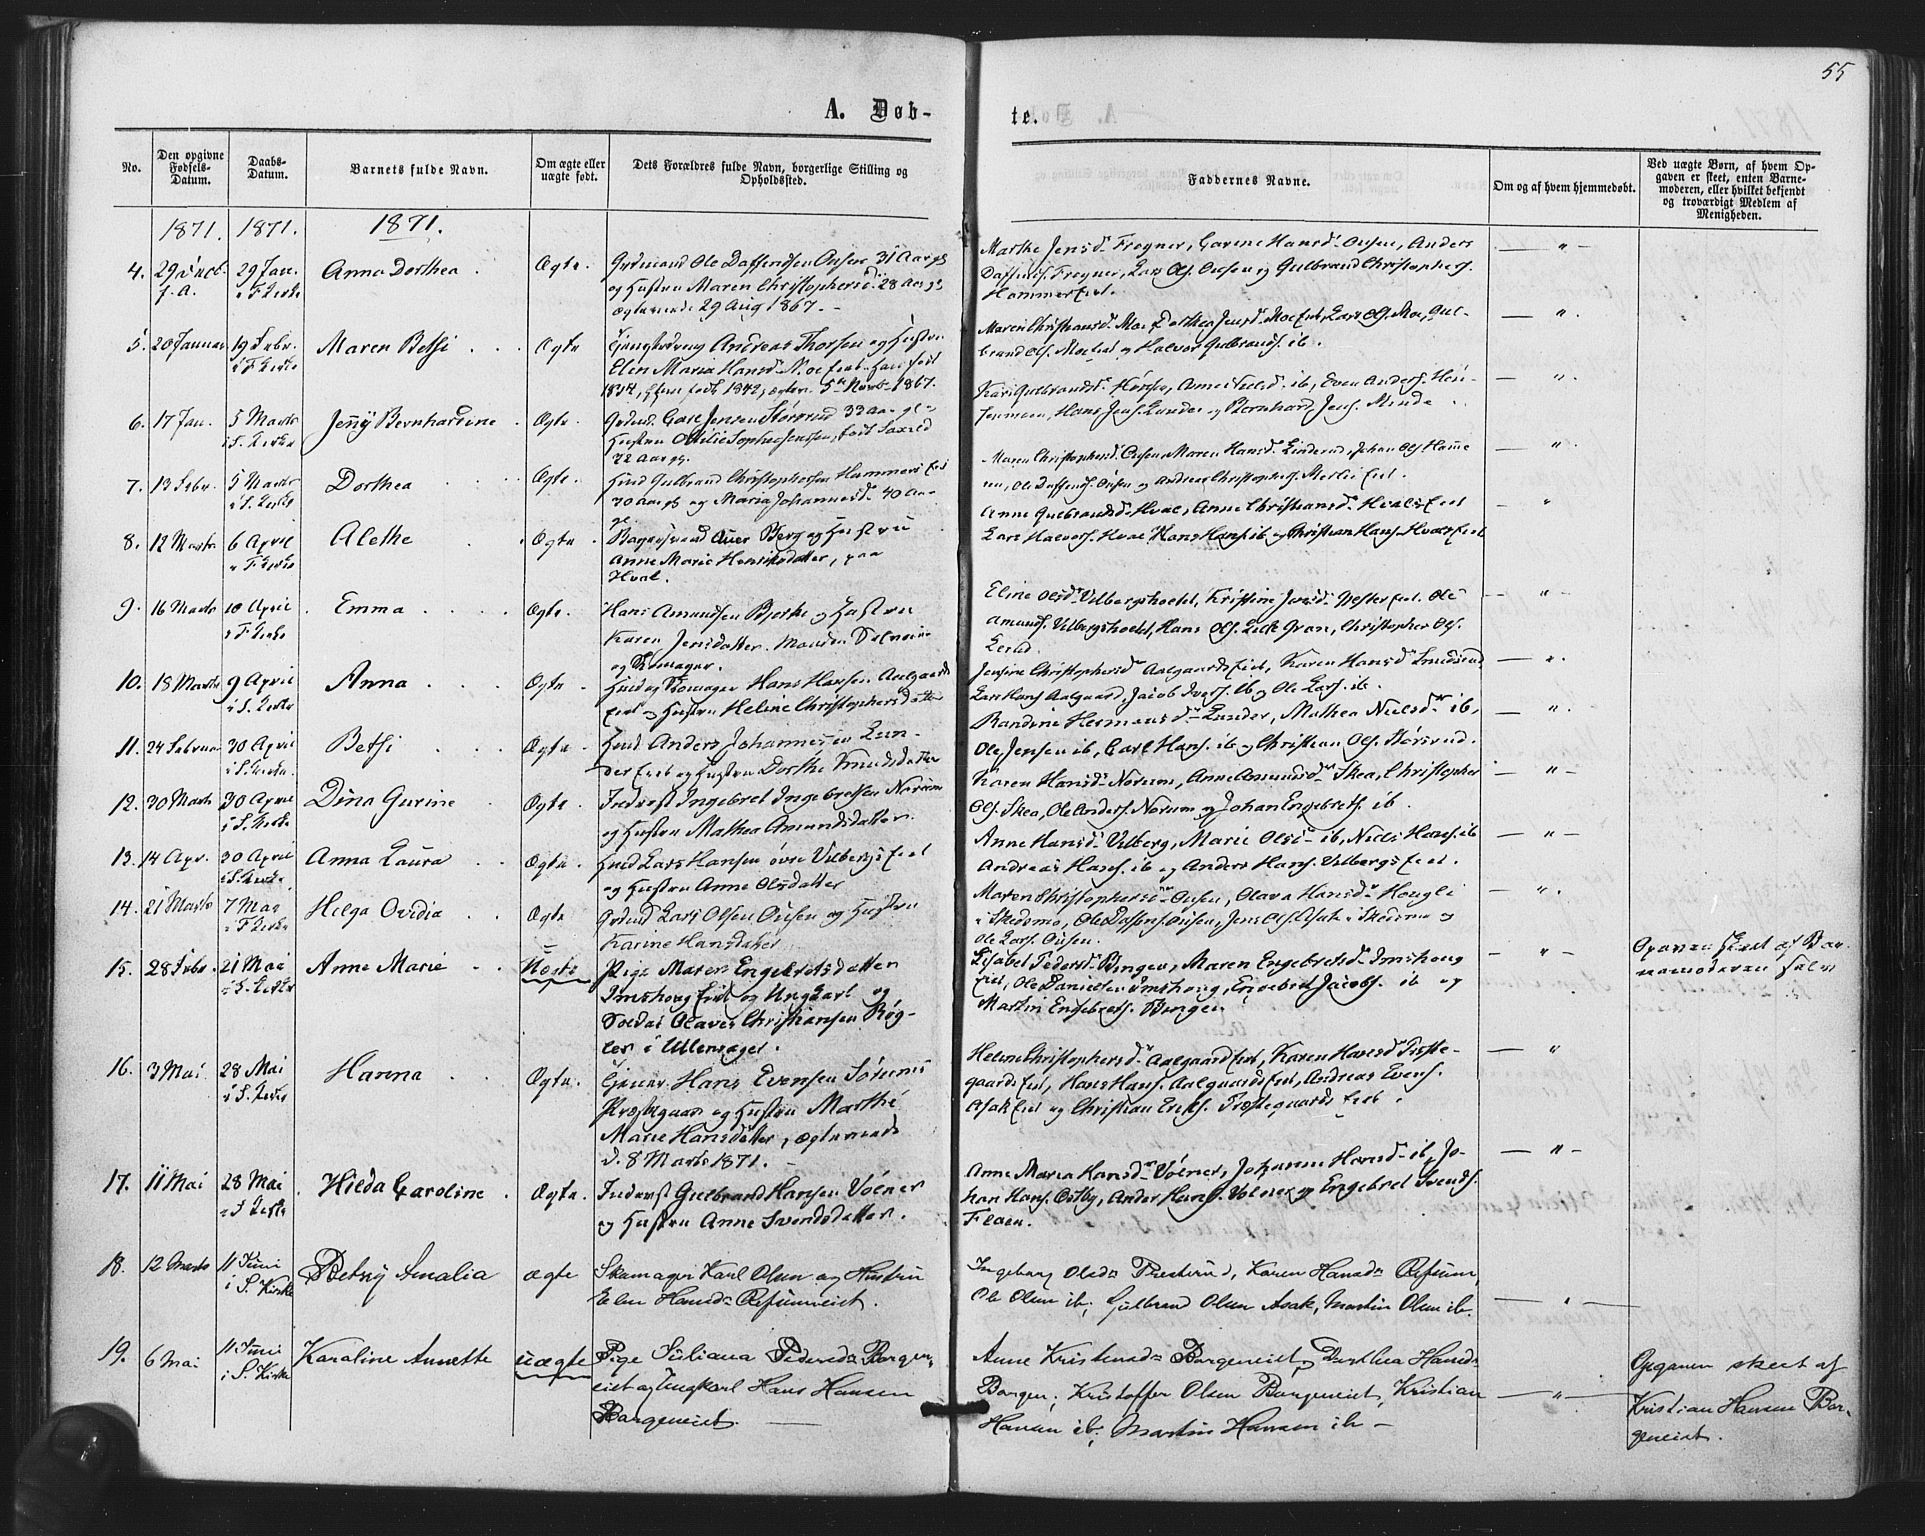 55
A. Døb-
te.
No.
Den opgivne Fødsels-Datum.
Daabs-Datum.
Barnets fulde Navn.
Om ægte eller uægte født.
Dets Forældres fulde Navn, borgerlige Stilling og Opholdssted.
Faddernes Navne.
Om og af hvem hjemmedøbt.
Ved uægte Børn, af hvem Opgaven er skeet, enten Barnemoderen, eller hvilket bekjendt og troværdigt Medlem af Menigheden.
1871. 1871. 1871.
4. 29 Decb. f. A. 29 Jan. i F Kirke Anna Dorthea Ægte.
Grdmand Ole Daffindsen Ousen 31 Aar gl.
og Hustru Maren Christophersd. 28 Aar gl.
Ægteviede 29 Aug 1867.
Marthe Jensd. Frogner, Gorine Hansd. Ousen, Anders
Daffinds. Frogner, Lars Ols. Ousen og Gulbrand Christophers.
Hammer Eiet.
5. 20 Januar 19 Febr. i F Kirke Maren Betsi Ægte
Andreas Thorsen og Hustru
Elen Maria Hansd. Moe Eiet
Maren Christiansd. Moe, Dorthea Jensd. Moe Eiet, Lars Ols. Moe, Gul-
brand Ols. Moe Eiet og Halvor Gulbrands. ib.
6. 17 Jan. 5 Marts i S. Kirke Jenny Bernhardine Ægte.
Grdmd. Carl Jensen Størsrud 33 Aar gl.
Hustru Otilie Sophie Jenssen
22 Aar gl.
Hans Jens. Lunder og Bernhard Jens. Minde
7. 13 Febr. 5 Marts i S. Kirke Dorthea Ægte.
Husmd Gulbrand Christophersen Hammers Eiet
30 Aar gl. og Maria Johannesd. 40 Aar
gl.
Maren Christophersd. Ousen, Maren Hansd. Linderud, Johan Ols. Hamme-
ren, Ole Daffinds. Ousen og Andreas Christophers. Merli Eiet.
8. 12 Marts 6 April i F Kirke Alethe Ægte
Berg og Hustru
Anne Marie Henriksdatter, paa
Hval.
Anne Gulbrandsd. Hval, Anne Christiansd. Hvals Eiet
Lars Halvors. Hval, Hans Hans. ib og Christian Hans. Hvals Eiet
9. 16 Marts 10 April i F Kirke Emma Ægte.
Hans Amundsen Bjerke og Hustru
Karen Jensdatter. Manden
og Skomager.
Eline Olsd. Vilbergshoelet, Kristine Jensd. Vester Eiet, Ole
Amunds. Vilbergshoelet, Hans Ols. Gran, Christopher Ols.
10. 18 Marts 9 April i S. Kirke Anna Ægte
Husmd og Skomager Hans Hansen Aalgaards
Eiet og Hustru Helene Christophersdatter
Jensine Christophersd. Aalgaards Eiet, Karen Hansd.
Lars Hans. Aalgaard, Jacob Ivers. ib og Ole Lars. ib.
11. 24 Februar 30 April i S. Kirke Betsi Ægte
Husmd Anders Johannesen Lun-
der Eiet og Hustru Dorthe Knudsdatter
Randine Hermansd. Lunder, Mathea Nielsd. ib,
Ole Jensen ib, Carl Hans. ib og Christian Ols. Størsrud.
12. 30 Marts 30 April i S. Kirke Dina Gurine Ægte
Inderst Ingebret Ingebretsen Norum
og Hustru Mathea Amundsdatter.
Karen Hansd. Norum, Anne Amundsd. Skea, Christopher
Ols. Skea, Ole Anders. Norum og Johan Engebrets. ib.
13. 14 Apr. 30 April i S. Kirke Anna Laura Ægte
Husmd Lars Hansen øvre Vilbergs Eiet
og Hustru Anne Olsdatter
Anne Hansd. Vilberg, Marie Olsd. ib, Niels Hans. ib
Andreas Hans. ib og Anders Hans. Vilbergs Eiet.
14. 21 Marts 7 Mai i F Kirke Helga Ovidia Ægte
Grdmd Lars Olsen Ousen og Hustru
Karine Hansdatter
Maren Christophersd. Ousen, Olava Hansd. Hougli
i Skedsmo, Ole Daffinds. Ousen, Jens Ols. Asak i Skedsmo og
Ole Lars. Ousen.
15. 28 Febr. 21 Mai i S. Kirke Anne Marie Uægte
Pige Maren Engebretsdatter
Imshoug Eiet og Ungkarl og
Soldat Olaves Christiansen Røg-
ler i Ullensager.
Lisabet Pedersd. Bingen, Maren Engebretsd. Imshoug
Eiet, Ole Danielsen Imshoug, Engebret Jacobs. ib og
Martin Engebrets. Bingen
Opgaven skeet af Bar-
nemoderen selv
16. 3 Mai 28 Mai i S. Kirke Hanna Ægte.
Hans Evensen Sørums
Præstegaard og Hustru Marthe
Marie Hansdatter, ægteviede
d. 8 Marts 1871.
Helene Christophersd. Aalgaard Eiet, Karen Hansd. Præste-
gaards Eiet, Hans Hans. Aalgaards Eiet, Andreas Evens.
Asak Eiet og Christian Eriks. Præstegaards Eiet.
17. 11 Mai 28 Mai i S Kirke Hilda Caroline Ægte.
Inderst Gulbrand Hansen Volner
og Hustru Anne Svendsdatter.
Anne Maria Hansd. Volner, Johanne Hansd. ib, Jo-
han Hans. Østby, Anders Hans. Volner og Engebret Svends.
Flaen.
18. 12 Marts 11 Juni i S. Kirke Betsy Amalia ægte
Skomager Karl Olsen og Hustru
Elen Hansd. Refsumeiet.
Ingeborg Olsd. Prestrud, Karen Hansd. Refsum,
Ole Olsen ib, Gulbrand Olsen Asak, Martin Olsen ib.
19. 6 Mai 11 Juni i S. Kirke Karoline Annette uægte
Pige Juliana Pedersd. Borgen-
eiet og Ungkarl Hans Hansen
Borgeneiet.
Anne Kristensd. Borgeneiet, Dorthea Hansd.
Borgen, Kristoffer Olsen Borgeneiet, Kristian
Hansen ib, Martin Hansen ib
Opgaven skeet af
Kristian Hansen Bor-
geneiet.